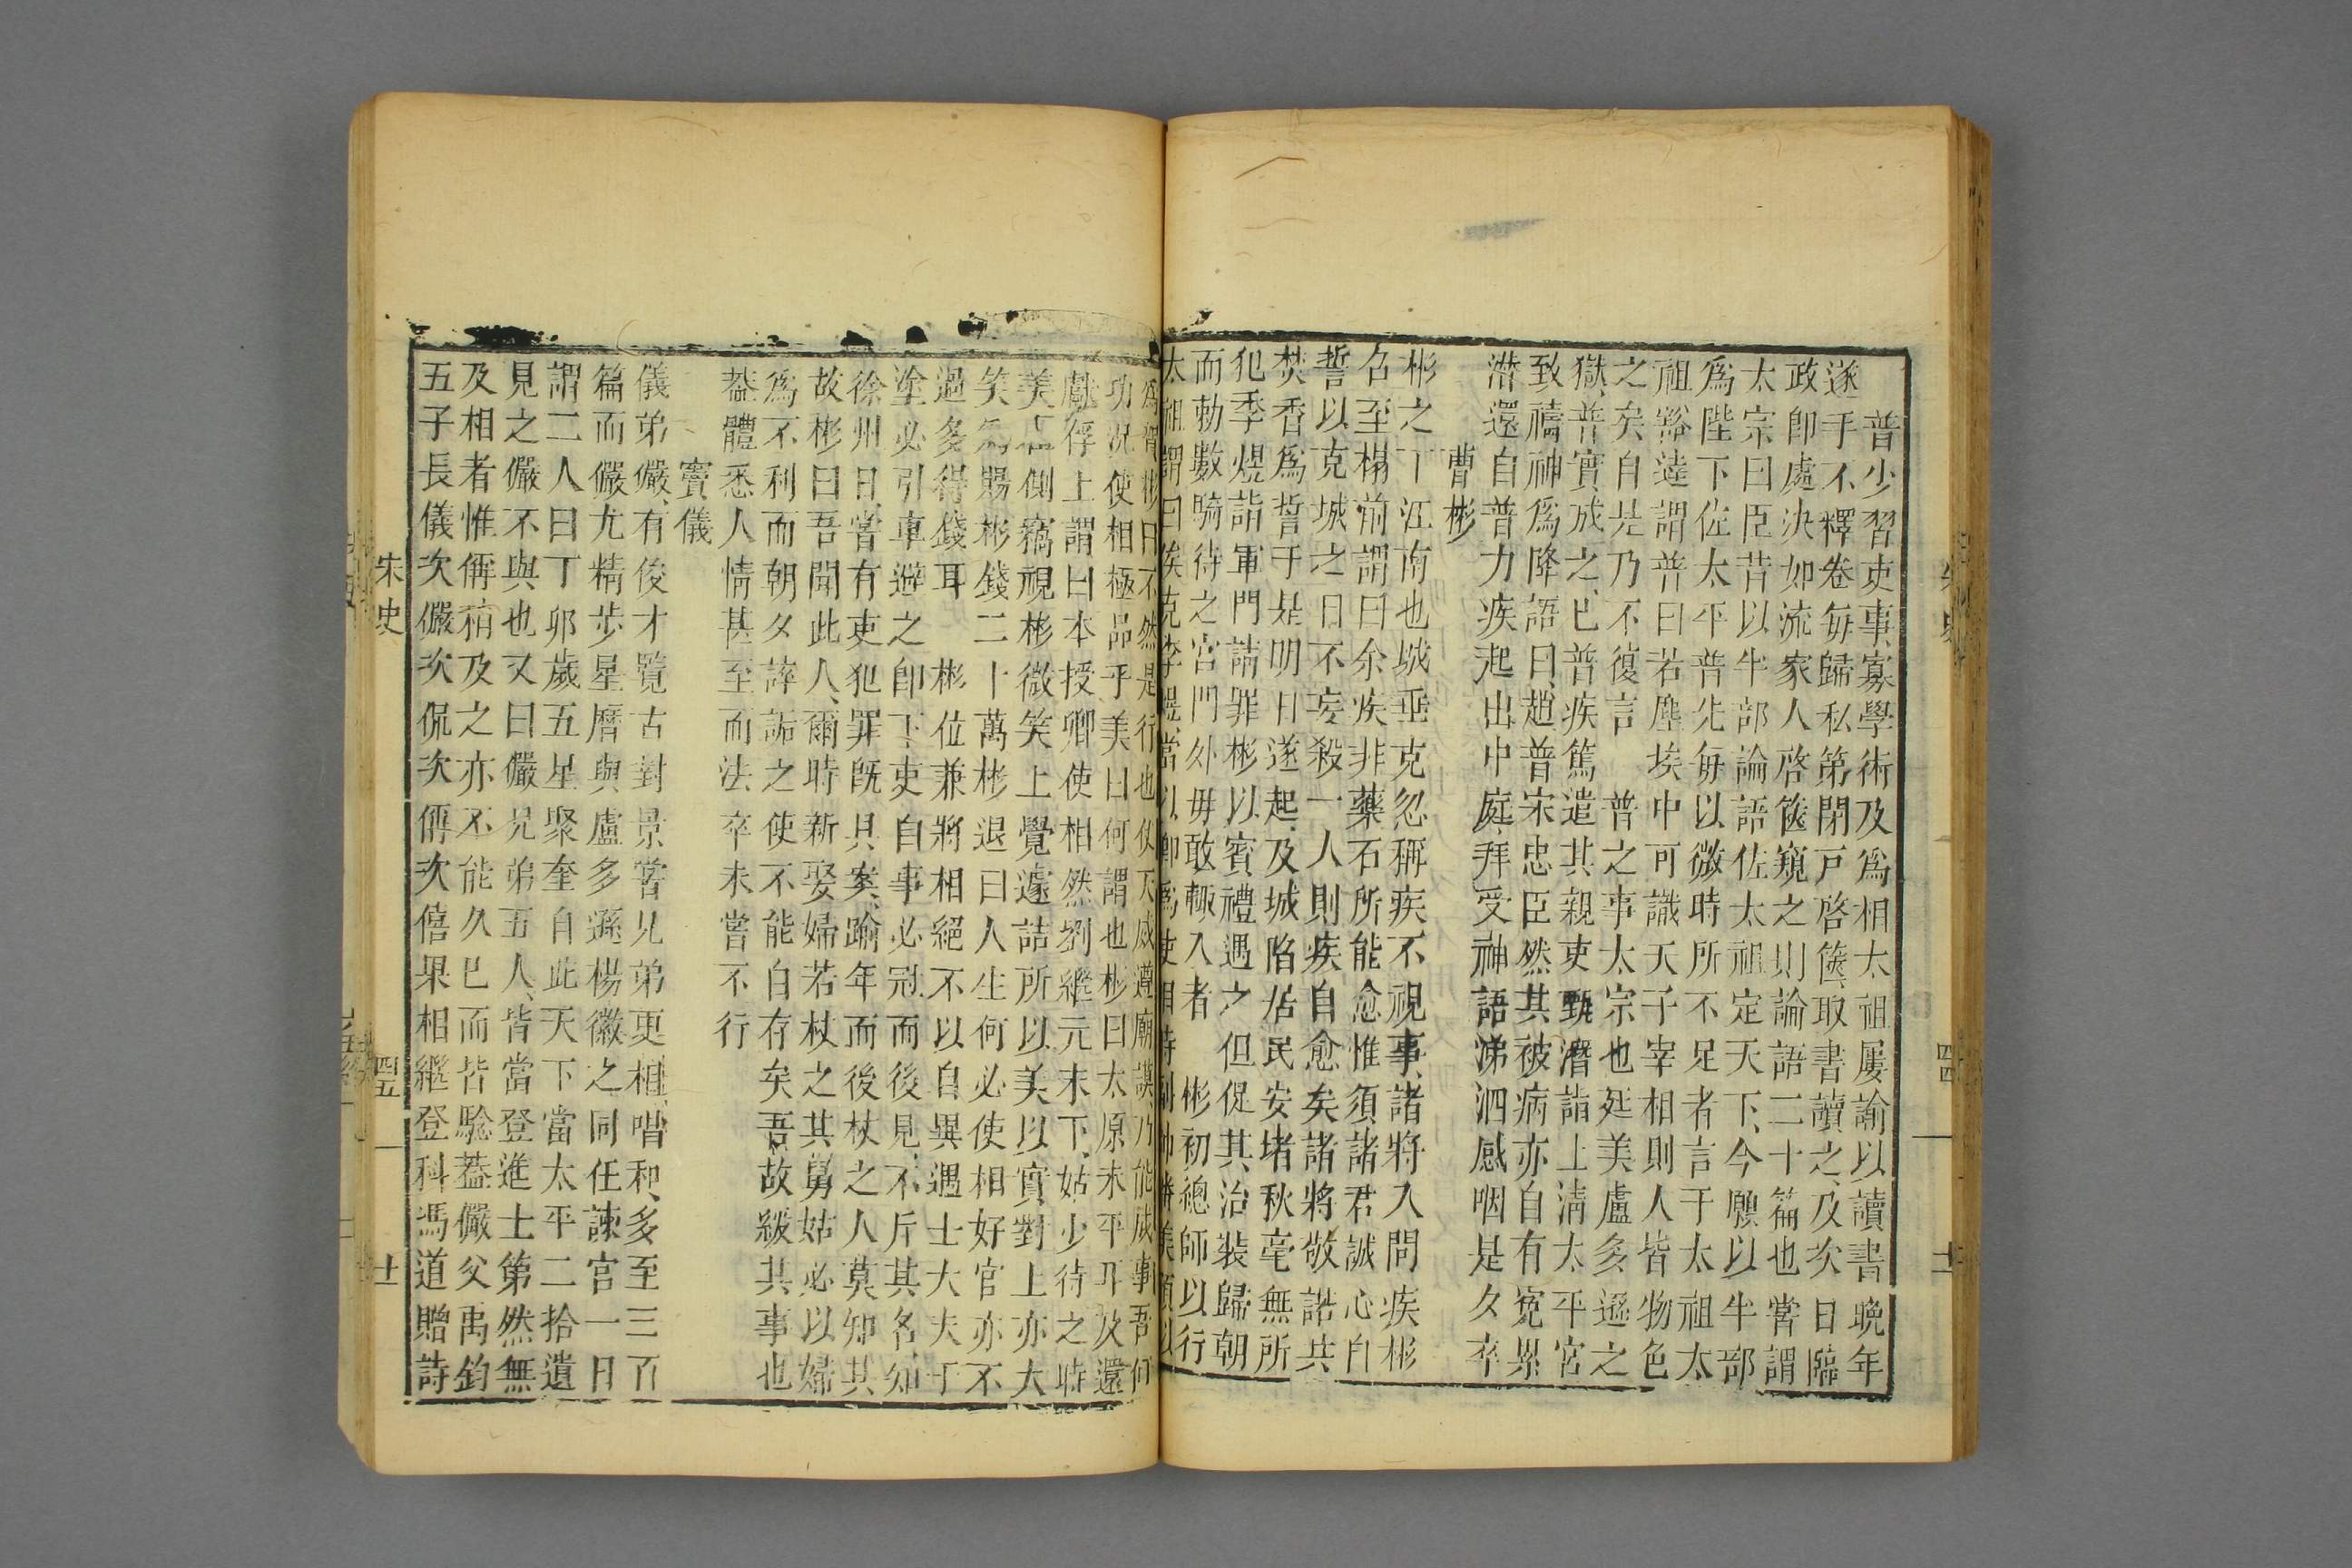 普少習吏事寡學術及爲相太祖屢諭以讀書晚年
遂手不釋卷每歸私第閉戸啓篋取書讀之及次日臨
政即處決如流家人啓篋窺之則論語二十篇也嘗謂
太宗曰臣昔以半部論語佐太祖定天下今願以半部
爲陛下佐太平普先每以微時所不足者言于太祖太
祖豁逹謂普曰若塵埃中可識天子宰相則人皆物色
之矣自是乃不復言 普之事太宗也廷美盧多遜之
獄普實成之巳普疾篤遣其親吏甄潛詣上淸太平宮
致禱神爲降語曰趙普宋忠臣然其被病亦自有寃累
潛還自普力疾起出中庭拜受神語涕泗感咽是夕卒
曹彬
彬之下江南也城垂克忽稱疾不視事諸將入問疾彬
召至榻前謂曰余疾非藥石所能愈惟須諸君誠心自
誓以克城之日不妄殺一人則疾自愈矣諸將敬諾共
焚香爲誓于是明日遂起及城陷居民安堵秋毫無所
犯李煜詣軍門請罪彬以賓禮遇之但促其治裝歸朝
而勅數騎待之宮門外毋敢輙入者 彬初總師以行
太祖謂曰俟克李煜當以卿爲使相時副帥 美預以
爲賀彬曰不然是行也仗天威遵廟謨乃能成事吾何
功況使相極品乎美曰何謂也彬曰太原未平耳及還
獻俘上謂曰本授卿使相然劉繼元未下姑少待之時
美在側竊視彬微笑上覺遽詰所以美以實對上亦大
笑爲賜彬錢二十萬彬退曰人生何必使相好官亦不
過多得錢耳 彬位兼將相絕不以自異遇士大夫于
塗必引車避之 即下吏自事必冠而後見不斥其名知
徐州日嘗有吏犯罪旣具案踰年而後杖之人莫知其
故彬曰吾聞此人爾時新娶婦若杖之其舅姑必以婦
爲不利而朝夕誶詬之使不能自存矣吾故緩其事也
葢體悉人情甚至而法卒未嘗不行
竇儀
儀弟儼有俊才覽古對景嘗兄弟更相唱和多至三百
篇而儼尤精步星曆與盧多遜楊徽之同任諫官一日
謂二人曰丁卯歲五星聚奎自此天下當太平二拾遺
見之儼不與也又曰儼兄弟五人皆當登進士第然無
及相者惟偁稍及之亦不能久巳而皆驗葢儼父禹鈞
五子長儀次儼次侃次偁次僖果相繼登科馮道贈詩
宋史
四五
十一
四四
十一